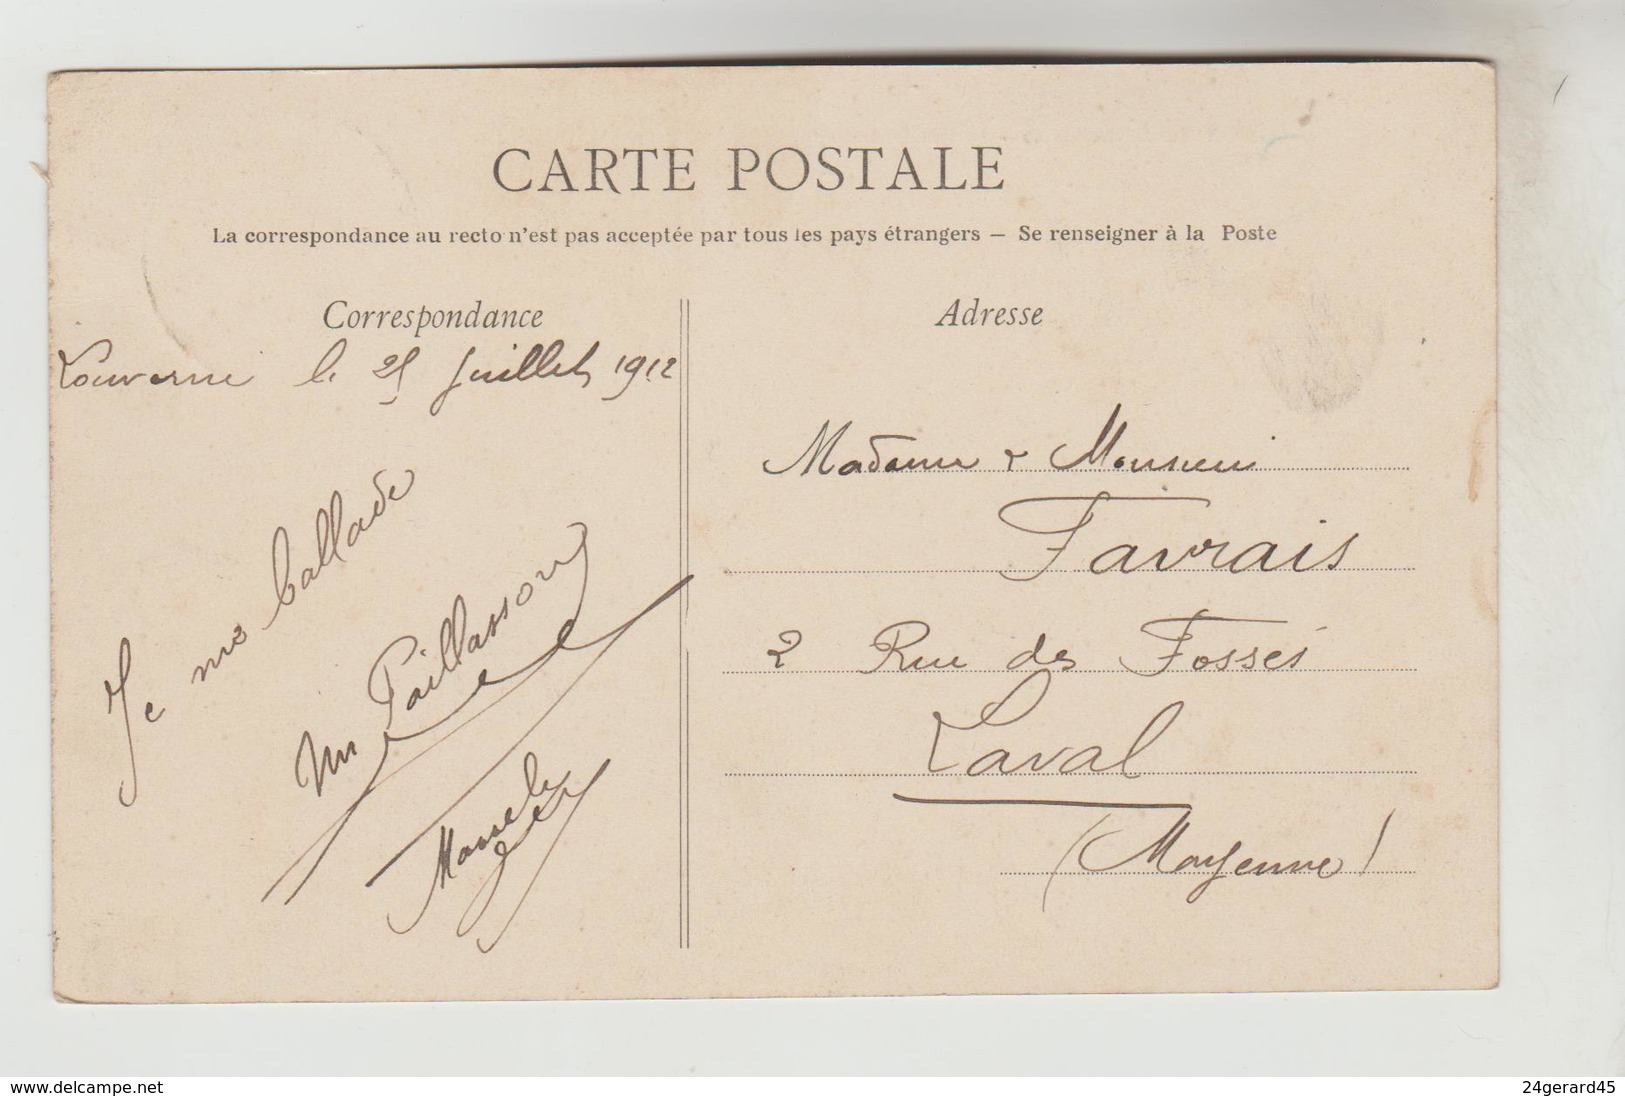 CARTE POSTALE
La correspondance au recto n'est pas acceptée par tous les pays étrangers — Se renseigner à la Poste
Correspondance
Louverne le 25 Juillet 1912
Je me ballade
M Paillasson
Adresse
Madame & Monsieur
Favrais
2 Rue des Fossés
Laval
(Mayenne)
www.delcampe.net
24gerard45